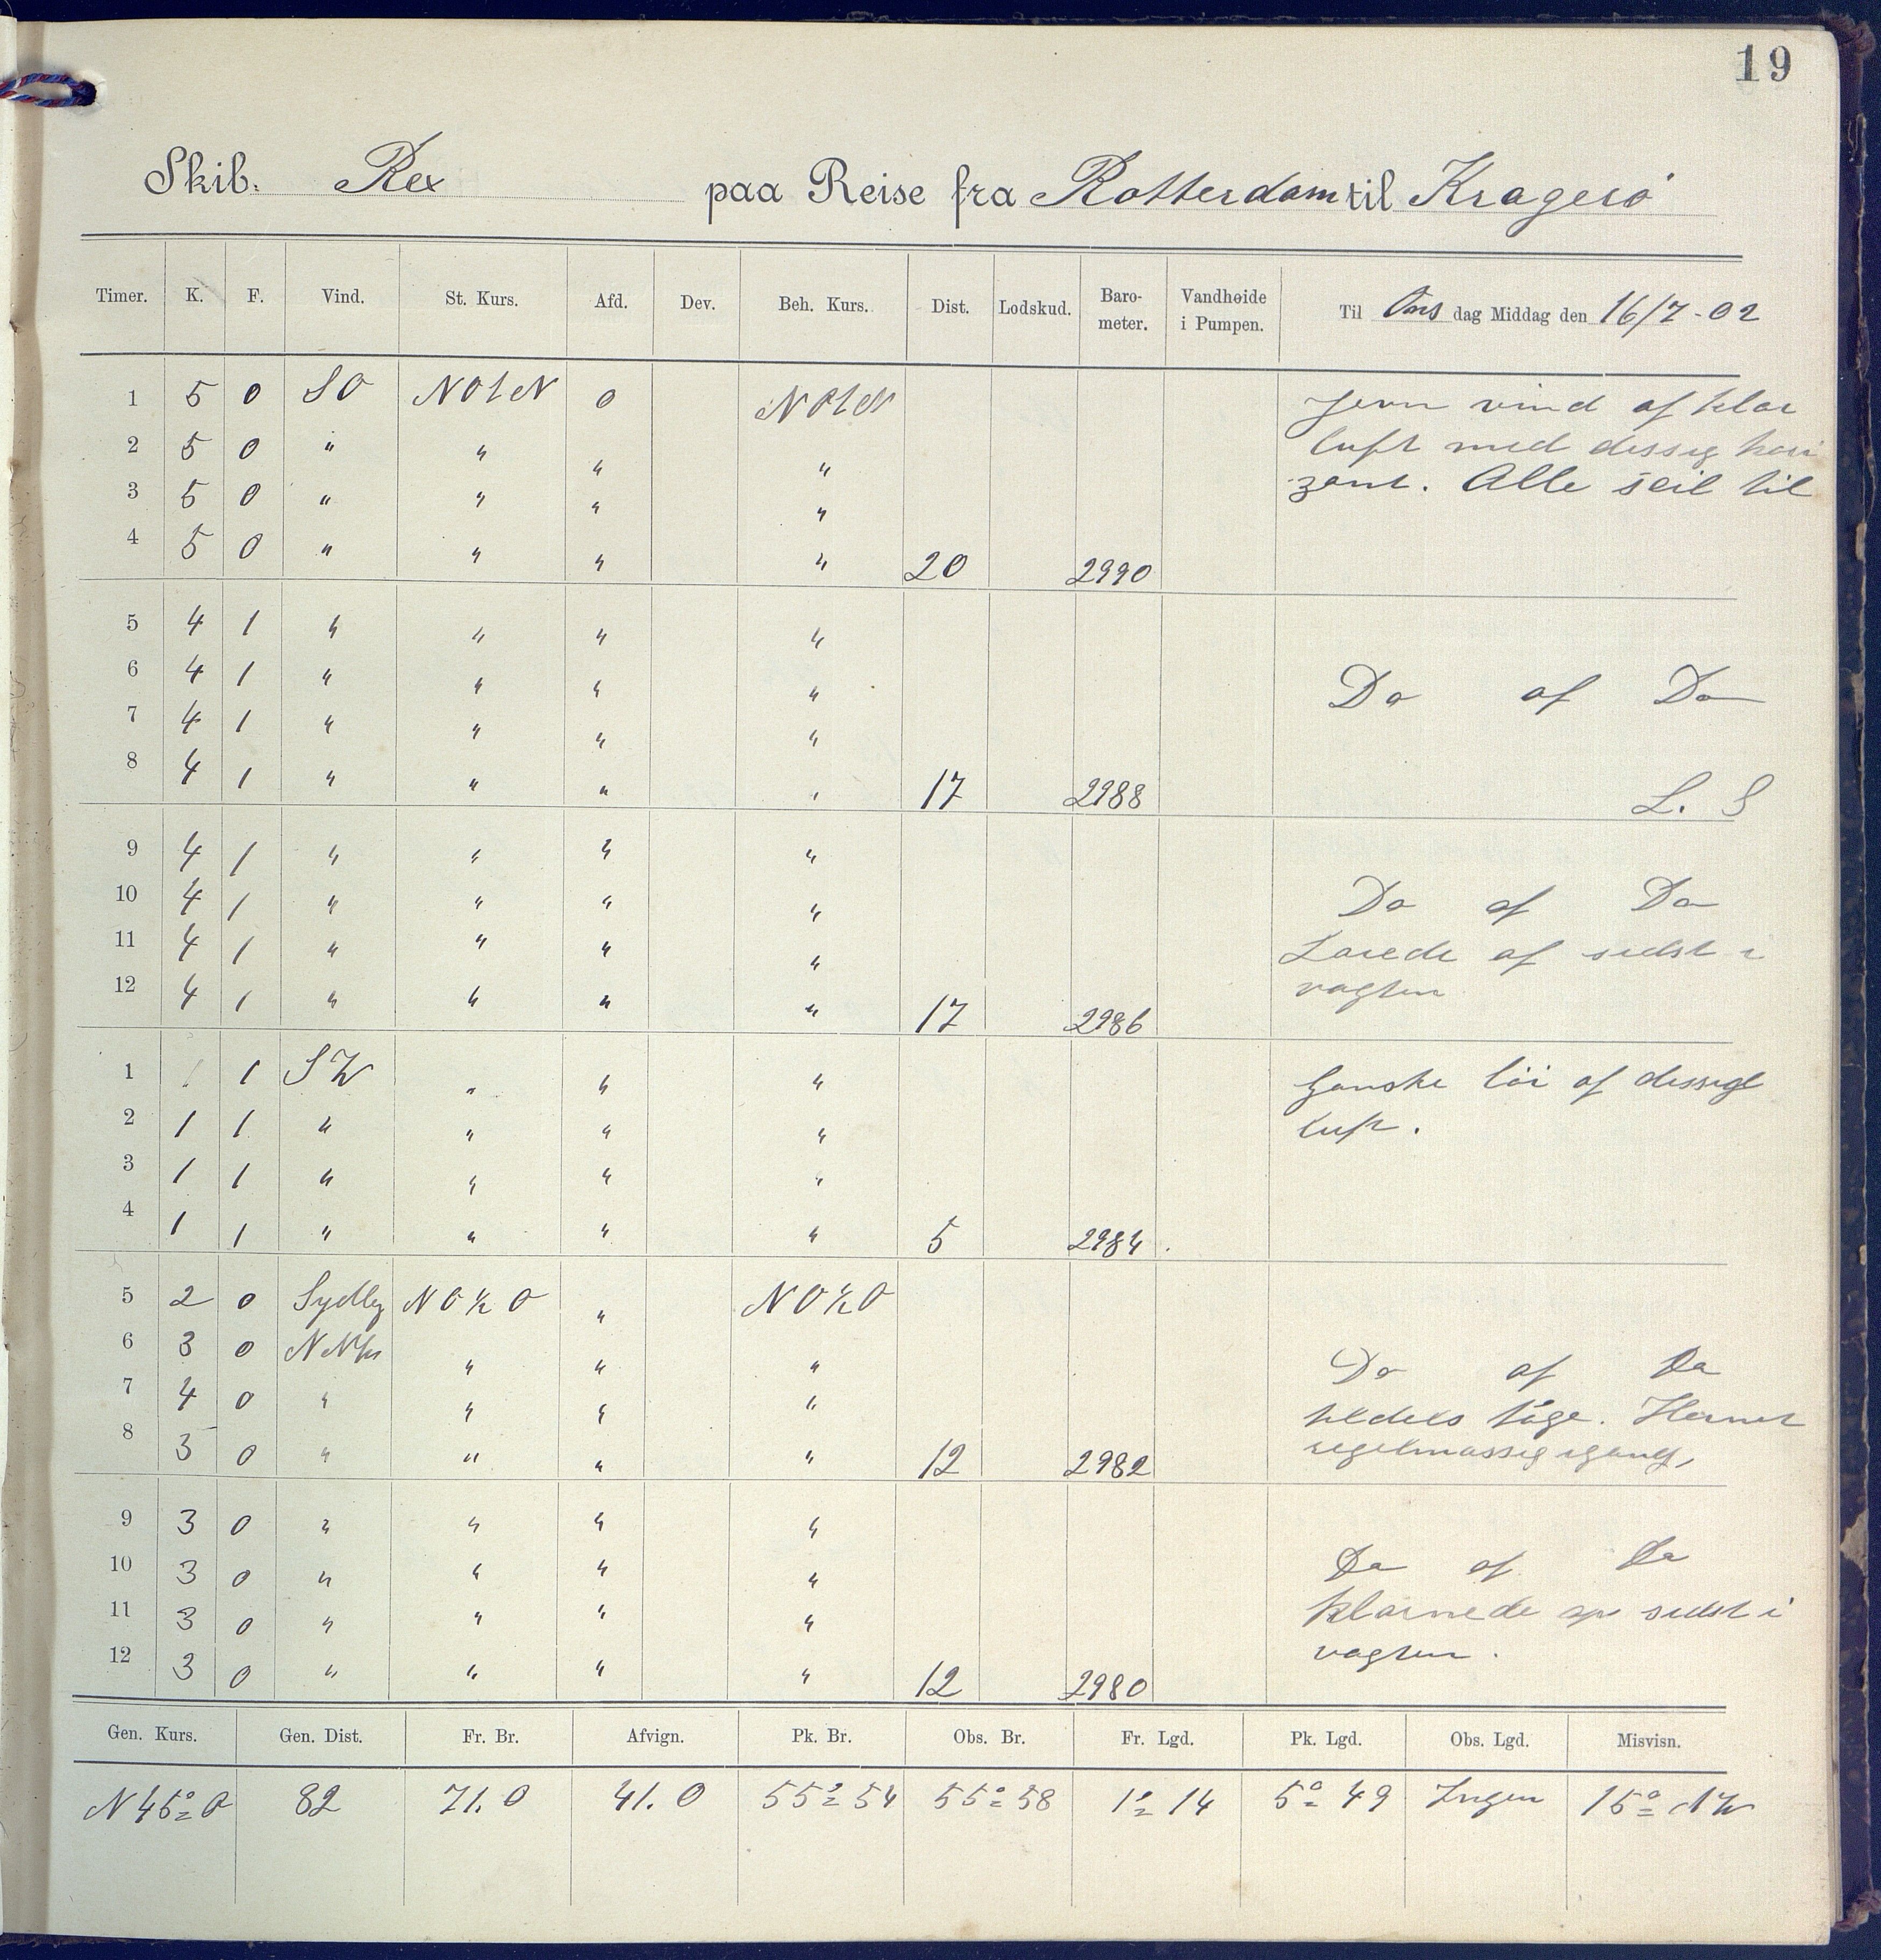 19
Skib. Rex paa Reise fra Rotterdam til Kragerö
Timer. K. F. Vind. St. Kurs. Afd. Dev. Beh. Kurs. Dist. Lodskud. Baro-meter. Vandhøide i Pumpen. Til Ons dag Middag den 16/7-02
1 5 0 SO NOtN 0 NOtN Jevn vind af klar
2 5 0 " " " " luft med dissig hori
3 5 0 " " " " zont. Alle seil til
4 5 0 " " " " 20 2990
5 4 1 " " " "
6 4 1 " " " " Do af Do
7 4 1 " " " "
8 4 1 " " " " 17 2988 L. S
9 4 1 " " " "
10 4 1 " " " " Do af Do
11 4 1 " " " " af sidst i
12 4 1 " " " " 17 2986 vagten
1 1 1 SW " " " Ganske löi af dissigt
2 1 1 " " " " luft.
3 1 1 " " " "
4 1 1 " " " " 5 2984.
5 2 0 Sydlig NO½O " NO½O
6 3 0 " " " Do af Do
7 4 0 " " " " tildels tåge. Hornet
8 3 0 " " " " 12 2982 regelmassig igang,
9 3 0 " " " "
10 3 0 " " " " Do af Do
11 3 0 " " " " klarnede op sidst i
12 3 0 " " " " 12 2980 vagten.
Gen. Kurs. Gen. Dist. Fr. Br. Afvign. Pk. Br. Obs. Br. Fr. Lgd. Pk. Lgd. Obs. Lgd. Misvisn.
N 45° O 82 71.0 41.0 55° 54 55° 58 1° 14 5° 49 Ingen 15° NW